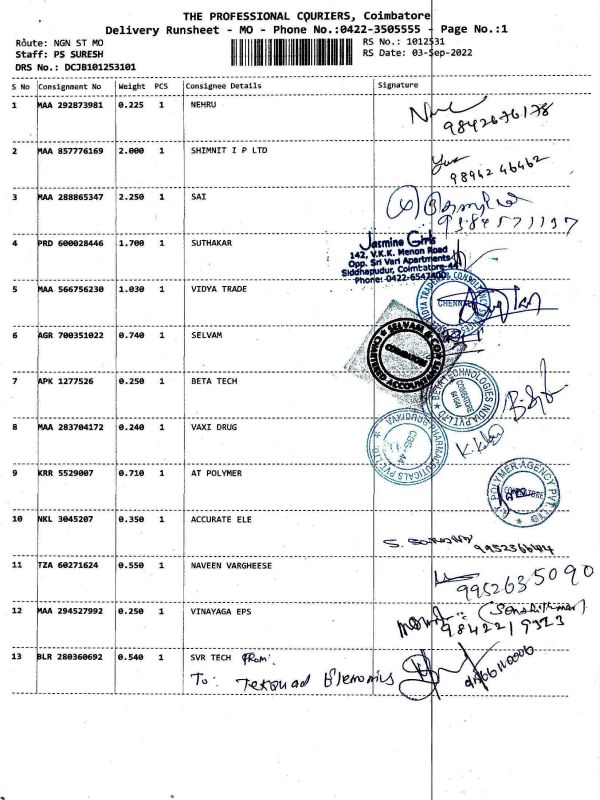 THE PROFESSIONAL COURIERS, Coimbatore
Delivery Runsheet - MO - Phone No.:0422-3505555 - Page No.:1
Route: NGN ST MO
RS No.: 1012531
Staff: PS SURESH
RS Date: 03-Sep-2022
DRS No.: DCJB101253101
S No Consignment No Weight PCS Consignee Details Signature
1 MAA 292873981 0.225 1 NEHRU
9842676178
2 MAA 857776169 2.000 1 SHIMNIT I P LTD
98942 46462
3 MAA 288865347 2.250 1 SAI
9384571137
4 PRD 600028446 1.700 1 SUTHAKAR
Jasmine Girls
142, V.K.K. Menon Road
Opp. Sri Vari Apartments
Siddhapudur, Coimbatore-44
Phone: 0422-
5 MAA 566756230 1.030 1 VIDYA TRADE
CHENNAI
6 AGR 700351022 0.740 1 SELVAM
SELVAM & CO
CHARTERED ACCOUNTANTS
COIMBATORE
7 APK 1277526 0.250 1 BETA TECH
BETA TECHNOLOGIES INDIA PVT LTD
COIMBATORE
8 MAA 283704172 0.240 1 VAXI DRUG
VAXIDRUG PHARMACEUTICALS PVT. LTD.
CBE-44
9 KRR 5529007 0.710 1 AT POLYMER
POLYMER AGENCY PVT. LTD
10 NKL 3045207 0.350 1 ACCURATE ELE
11 TZA 60271624 0.550 1 NAVEEN VARGHEESE
9952635090
12 MAA 294527992 0.250 1 VINAYAGA EPS
9842219323
13 BLR 280360692 0.540 1 SVR TECH From:
To: